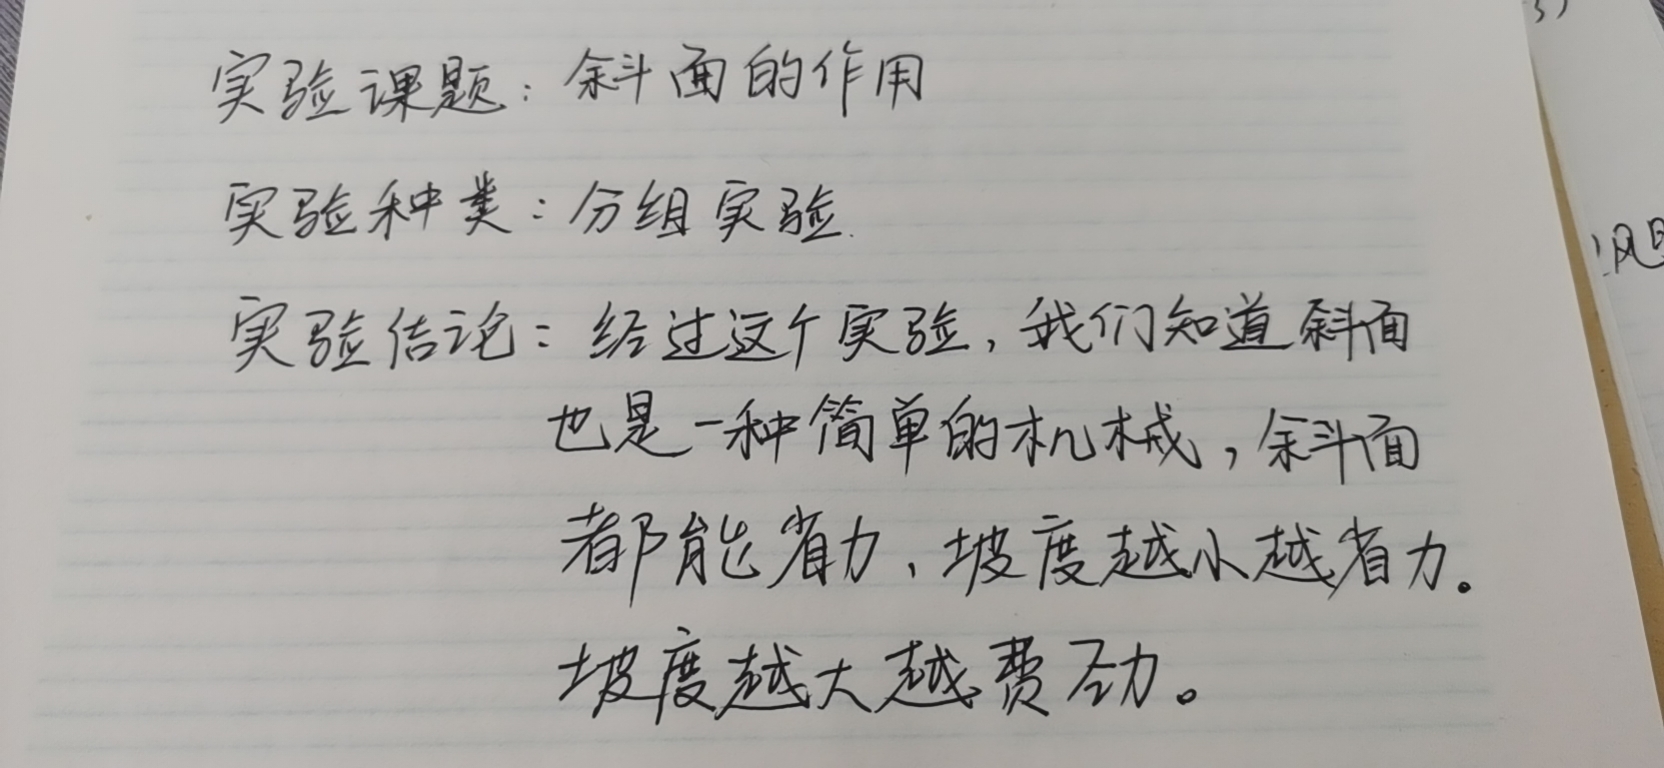 实验课题：斜面的作用
实验种类：分组实验.
实验结论：经过这个实验，我们知道斜面
也是一种简单的机械，斜面
都能省力、坡度越小越省力。
坡度越大越费劲。